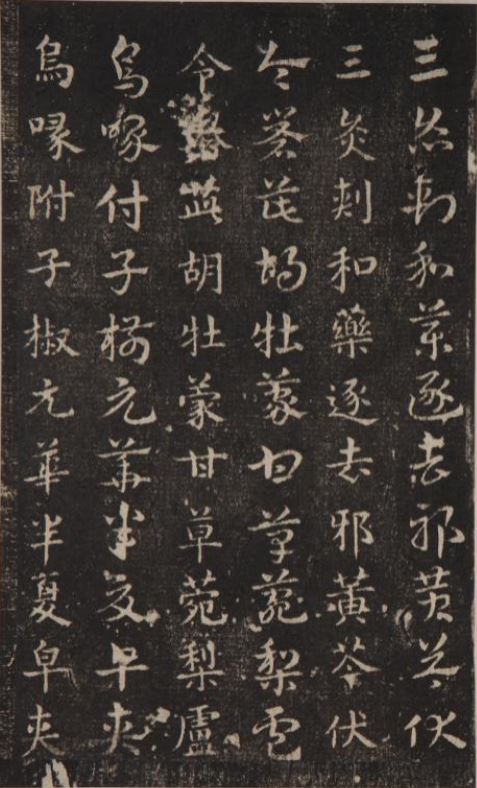 三灸刺和藥逐去邪黃芩伏
三灸刺和藥逐去邪黃芩伏
令礜茈胡牡蒙甘草菀梨盧
令茈胡牡蒙甘草菀梨盧
烏喙付子椒元華半夏早夾
烏喙附子椒元華半夏皁夾